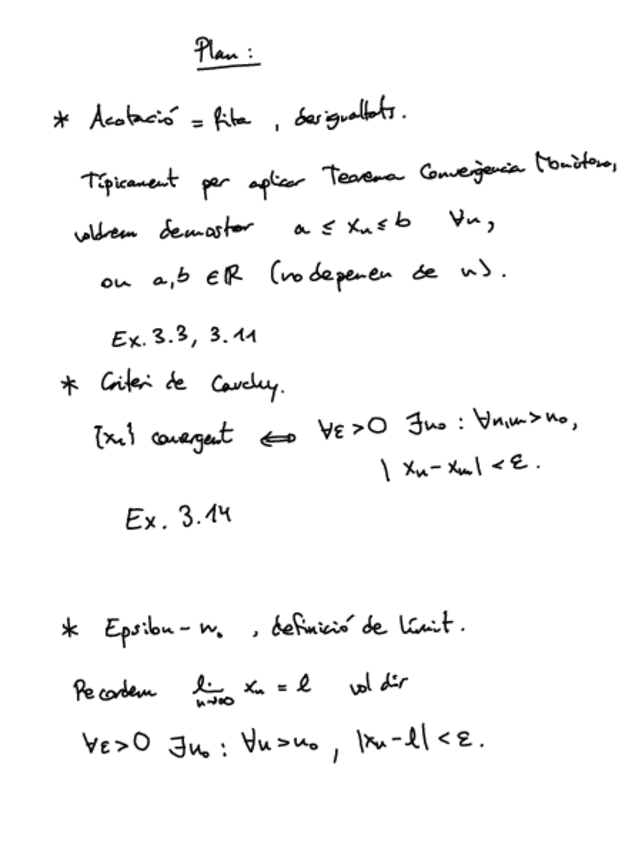 Plan :
* Acotació = fita , desigualtats.
Típicament per aplicar Teorema Convergència Monòtona,
voldrem demostar a ≤ xₙ ≤ b ∀n,
on a,b ∈ ℝ (no depenen de n).
Ex. 3.3, 3.11
* Criteri de Cauchy.
{xₙ} convergent ⟺ ∀ε>0 ∃n₀ : ∀n,m>n₀,
|xₙ-xₘ| < ε.
Ex. 3.14
* Epsilon - n₀ , definició de límit.
Recordem lim n→∞ xₙ = l vol dir
∀ε>0 ∃n₀ : ∀n>n₀ , |xₙ-l| < ε.